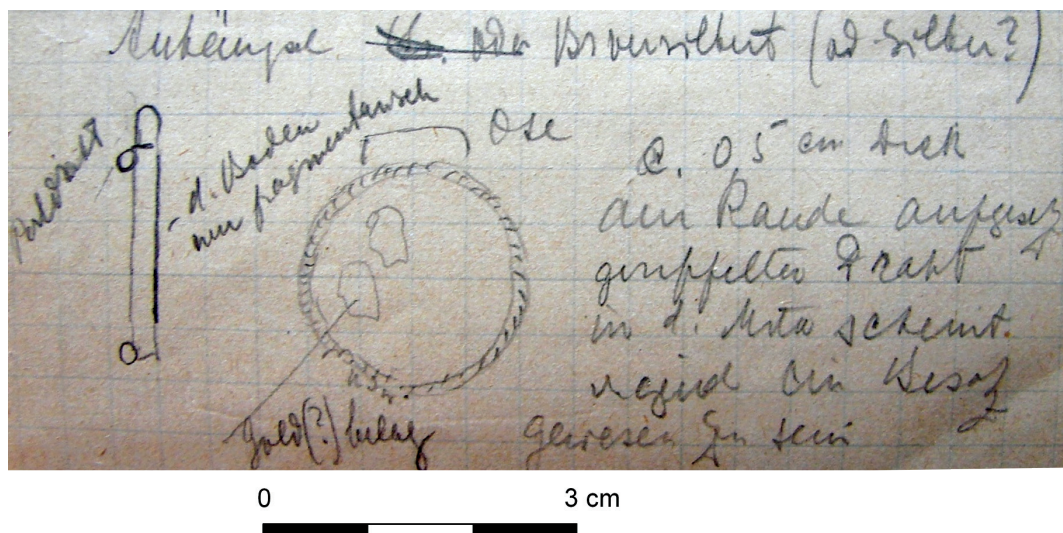 Anhängsel oder Br versilbert (od Silber?)
d. Boden
nur fragmentarisch
Öse
C. 0,5 cm dick
am Rande aufgesetz
geriffelter Draht
in d. Mitte scheint
irgend ein Besatz
gewesen zu sein
Gold(?)belag
0 3 cm